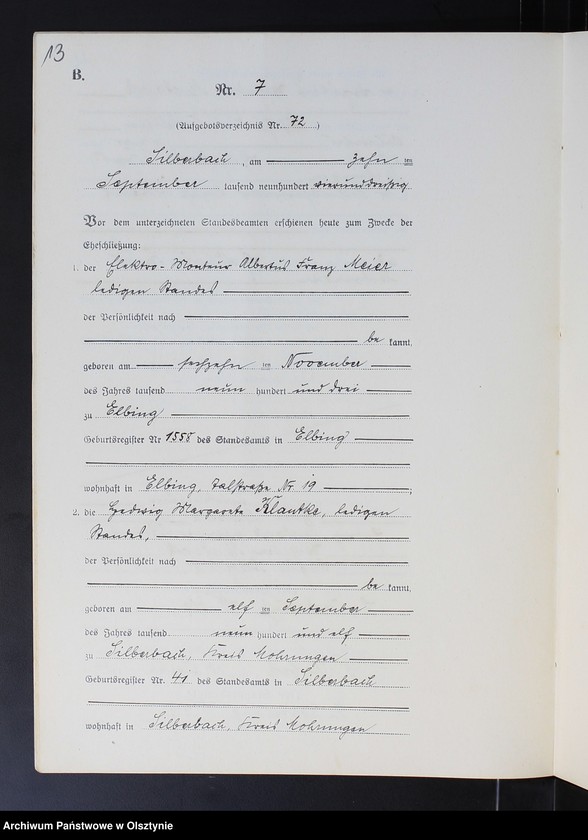 13
B.
Nr. 7
(Aufgebotsverzeichnis Nr. 72)
Silberbach, am zehn ten
September tausend neunhundert vierunddreißig
Vor dem unterzeichneten Standesbeamten erschienen heute zum Zwecke der
Eheschließung:
1. der Elektro-Monteur Albertus Franz Meier
ledigen Standes
der Persönlichkeit nach
be kannt,
geboren am sechzehn ten November
des Jahres tausend neun hundert und drei
zu Elbing
Geburtsregister Nr 1558 des Standesamts in Elbing
wohnhaft in Elbing, Talstraße Nr 19;
2. die Hedwig Margarete Klautke, ledigen
Standes,
der Persönlichkeit nach
be kannt,
geboren am elf ten September
des Jahres tausend neun hundert und elf
zu Silberbach, Kreis Mohrungen
Geburtsregister Nr. 41 des Standesamts in Silberbach
wohnhaft in Silberbach, Kreis Mohrungen
Archiwum Państwowe w Olsztynie